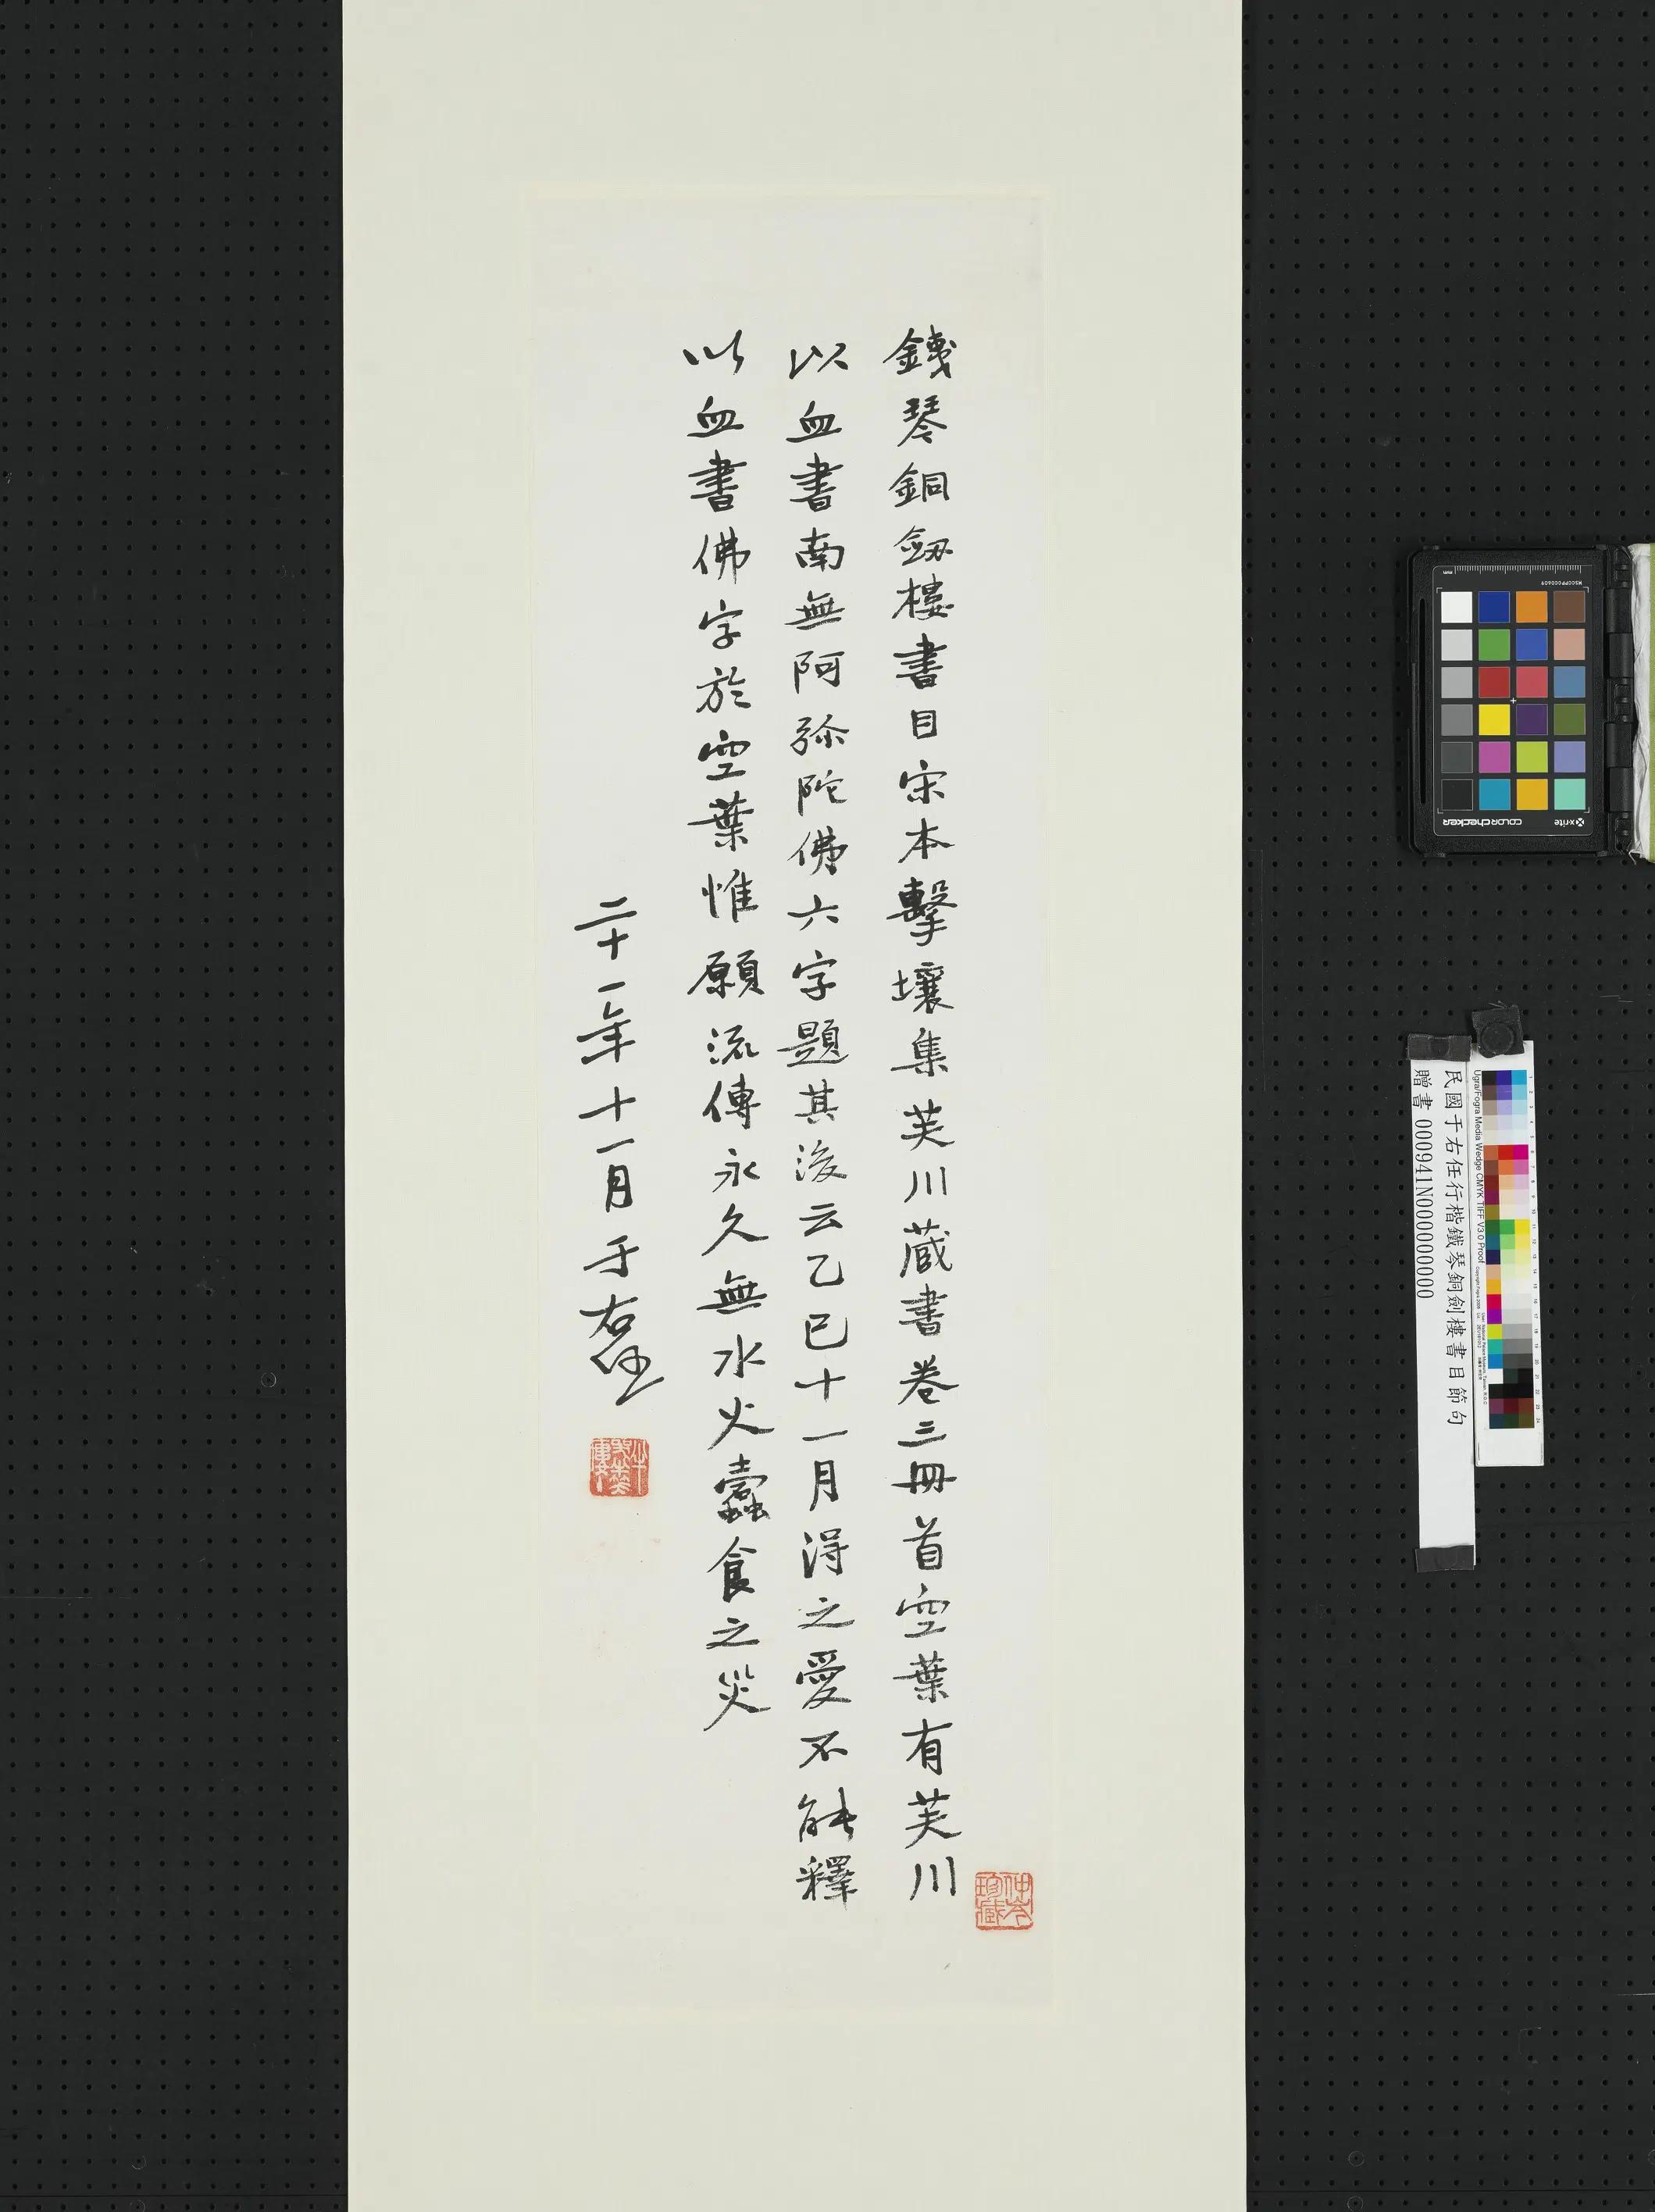 鐵琴銅劒樓書目宋本擊壤集芙川蔵書卷三冊首空葉有芙川
以血書南無阿弥陀佛六字題其後云乙巳十一月得之愛不能釋
以血書佛字於空葉惟願流傳永久無水火蠹食之災
二十一年十一月于右任
仲允珍藏
民國于右任行楷鐵琴銅劍樓書目節句
贈書 000941N000000000
Ugra/Fogra Media Wedge CMYK TIFF V3.0 Proof
x-rite
colorchecker
MSCCPP000609
mm